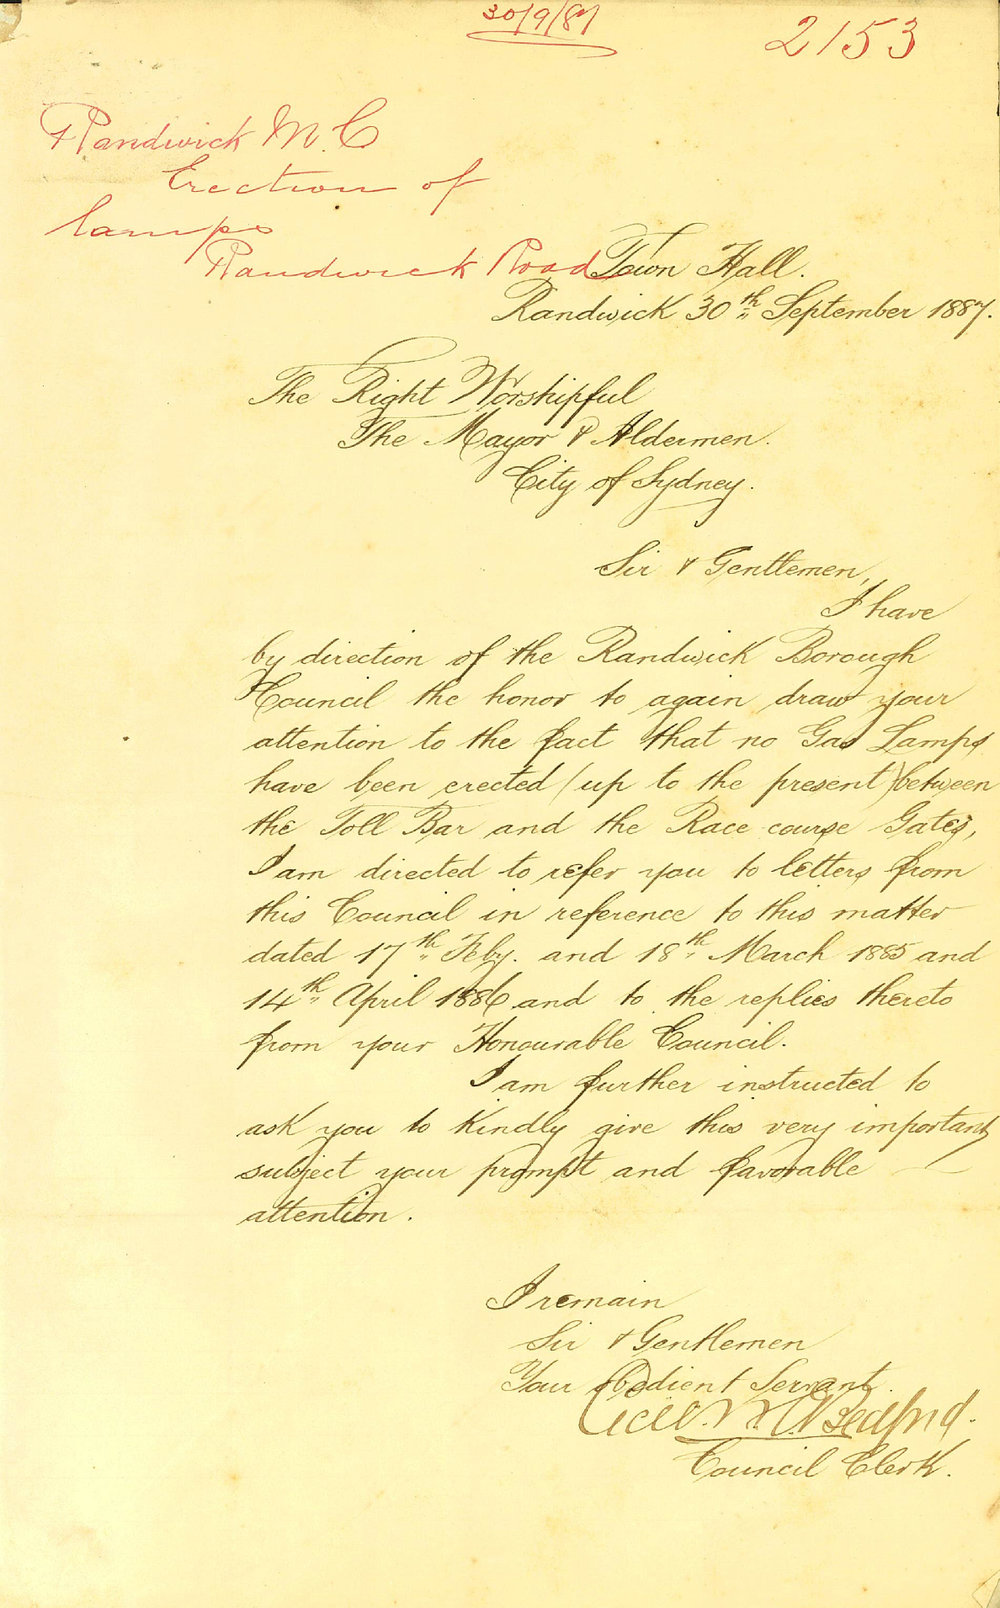 30/9/87
2153
Randwick M.C
Erection of
lamps
Randwick Road
Town Hall.
Randwick 30th September 1887.
The Right Worshipful
The Mayor & Aldermen.
City of Sydney.
Sir & Gentlemen,
I have
by direction of the Randwick Borough
Council the honor to again draw your
attention to the fact that no Gas Lamps
have been erected (up to the present) between
the Toll Bar and the Race course Gates,
I am directed to refer you to letters from
this Council in reference to this matter
dated 17th Feby. and 18th March 1885 and
14th April 1886 and to the replies thereto
from your Honourable Council.
I am further instructed to
ask you to kindly give this very important
subject your prompt and favorable
attention.
I remain
Sir & Gentlemen
Your Obedient Servant.
Council Clerk.